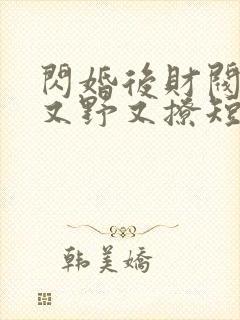 閃婚後財閥
又野又撩短
韩美嬌